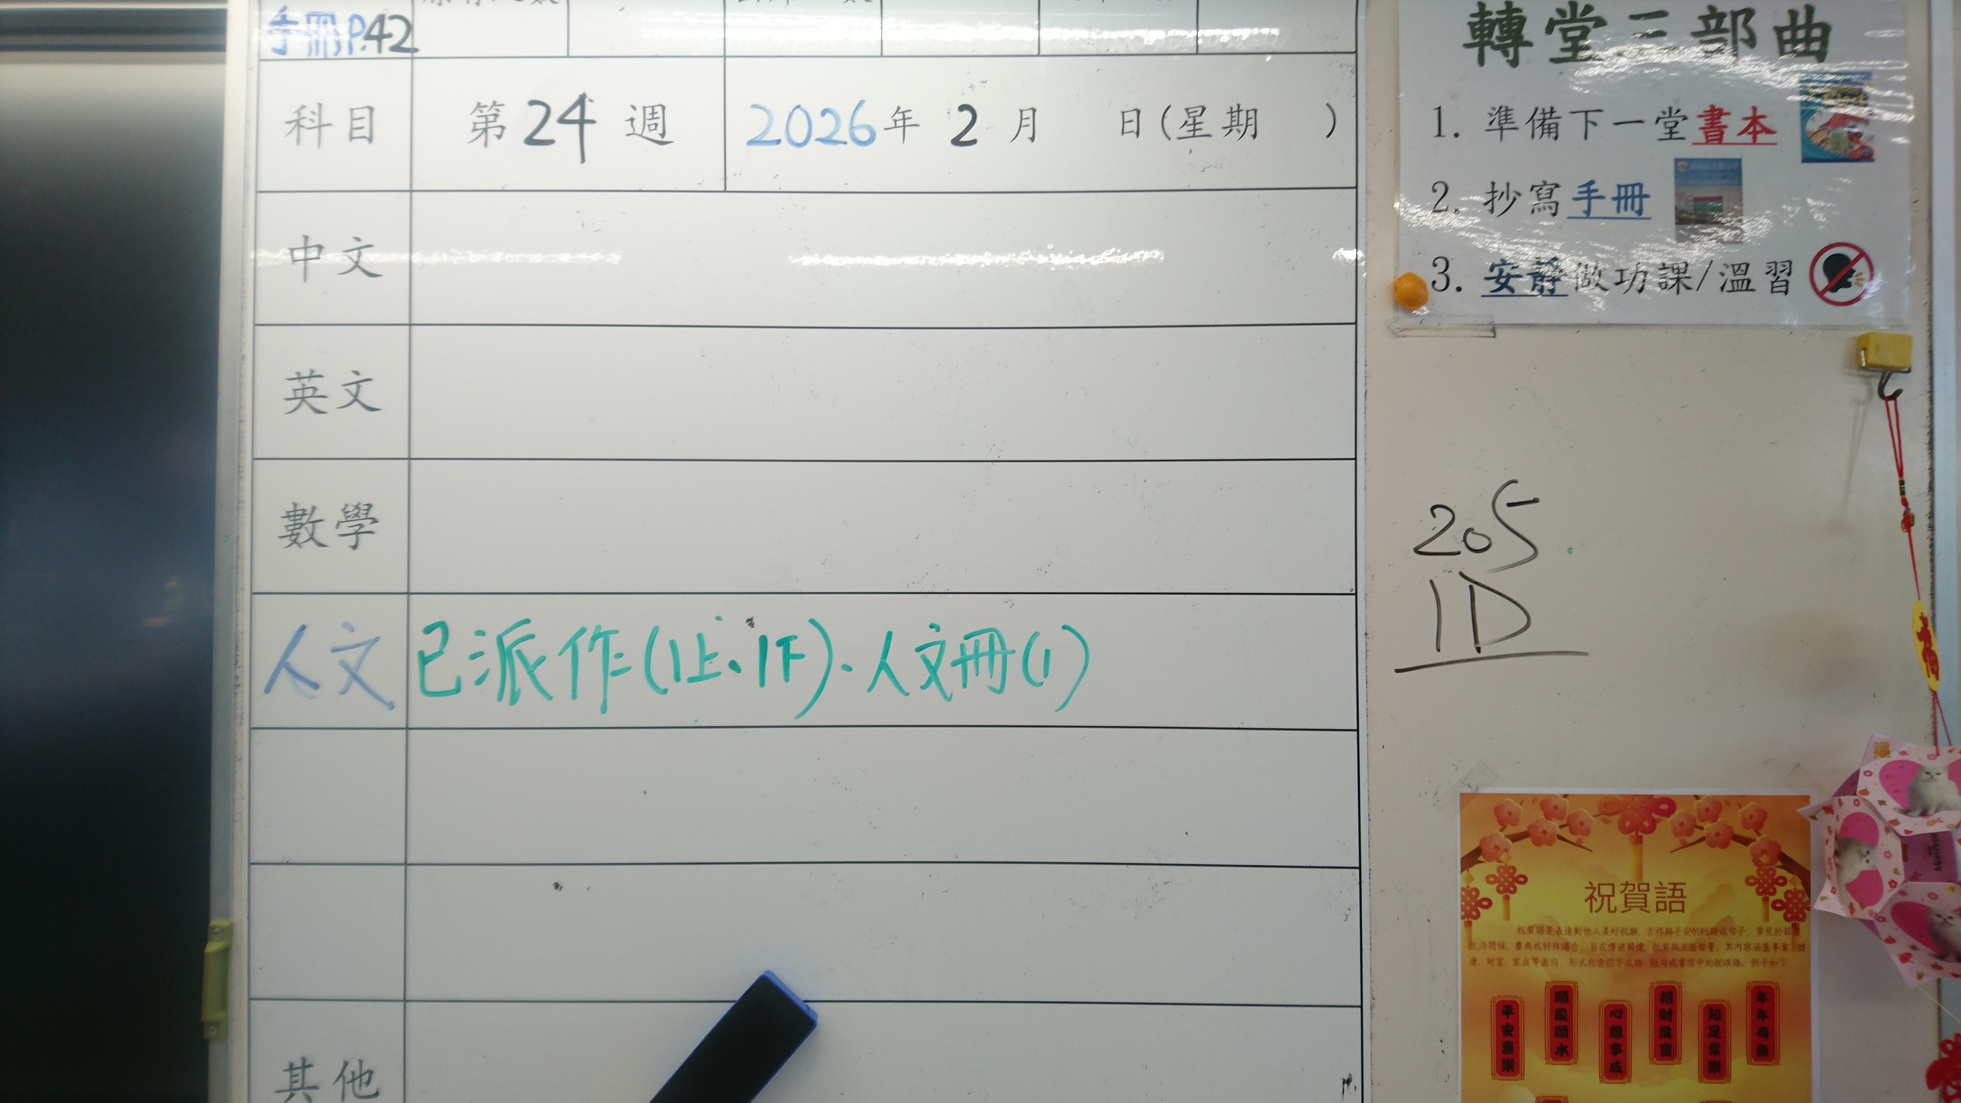 手冊P.42
科目 第24週 2026年 2月 日(星期 )
中文
英文
數學
人文 已派作(1上、1下)、人文冊(1)
其他
轉堂三部曲
1. 準備下一堂書本
2. 抄寫手冊
3. 安靜做功課/溫習
205
1D
祝賀語
平安喜樂
順風順水
心想事成
招財進寶
知足常樂
年年有魚